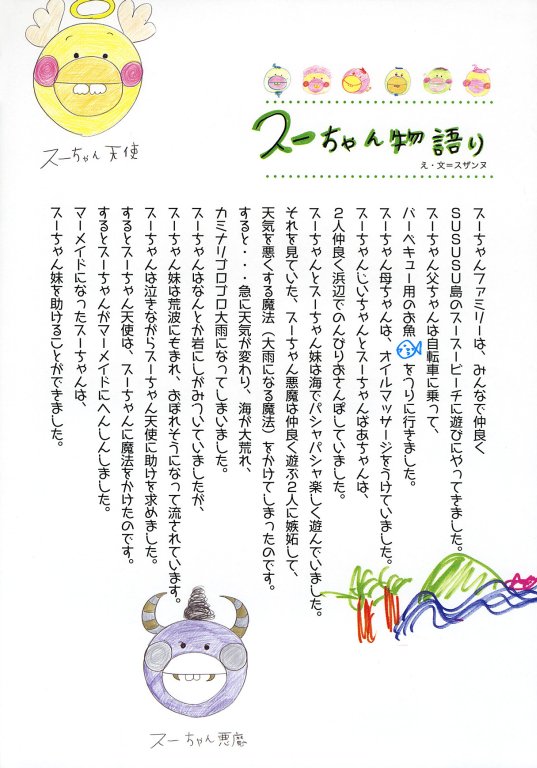 スーちゃん天使
スーちゃん物語り
え・文=スザンヌ
スーちゃんファミリーは、みんなで仲良く
SUSUSU島のスースービーチに遊びにやってきました。
スーちゃん父ちゃんは自転車に乗って、
バーベキュー用のお魚をつりに行きました。
スーちゃん母ちゃんは、オイルマッサージをうけていました。
スーちゃんじいちゃんとスーちゃんばあちゃんは、
2人仲良く浜辺でのんびりおさんぽしていました。
スーちゃんとスーちゃん妹は海でパシャパシャ楽しく遊んでいました。
それを見ていた、スーちゃん悪魔は仲良く遊ぶ2人に嫉妬して、
天気を悪くする魔法（大雨になる魔法）をかけてしまったのです。
すると・・・急に天気が変わり、海が大荒れ、
カミナリゴロゴロ大雨になってしまいました。
スーちゃんはなんとか岩にしがみついていましたが、
スーちゃん妹は荒波にのまれ、おぼれそうになって流されています。
スーちゃんは泣きながらスーちゃん天使に助けを求めました。
するとスーちゃん天使は、スーちゃんに魔法をかけたのです。
するとスーちゃんがマーメイドにへんしんしました。
マーメイドになったスーちゃんは、
スーちゃん妹を助けることができました。
スーちゃん悪魔